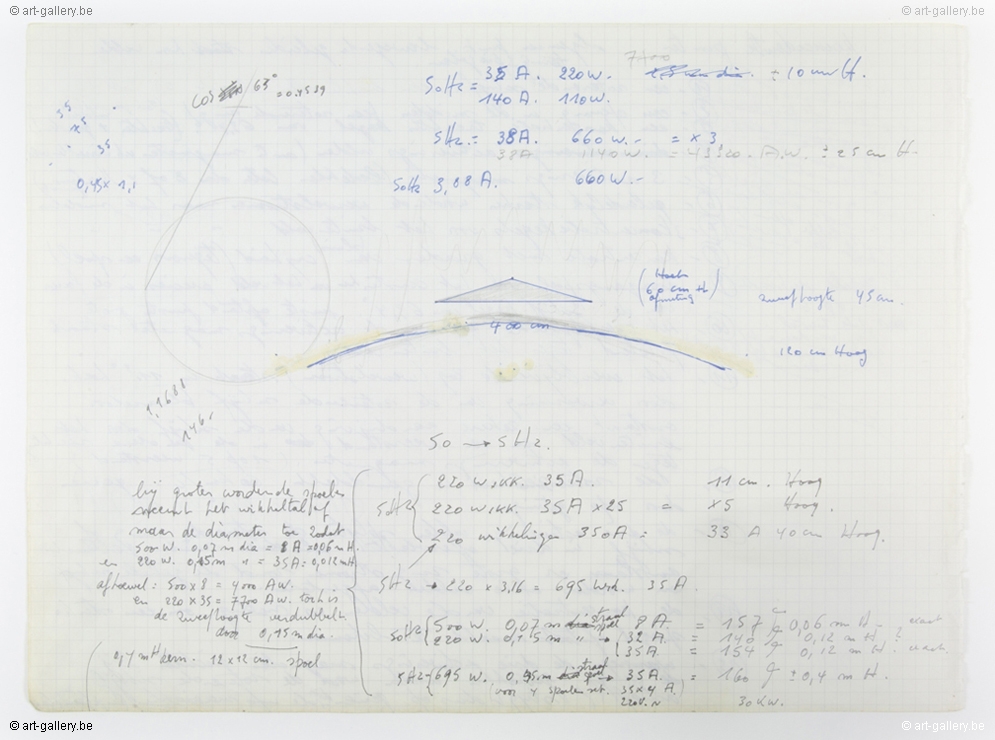 © art-gallery.be
© art-gallery.be
7700
50Hz = 35 A. 220 w. ± 10 cm H.
140 A. 110 w.
cos 63° = 0.4539
5Hz = 38A. 660 w. - = x 3
38A 1140 w. = 43320. A.W. ± 25 cm H.
35
35
0,45 x 1,1
50Hz 3,88 A. 660 w. -
60 cm H
zweefhoogte 45 cm.
400 cm
120 cm Hoog
1.1681
146.
50 → 5 Hz.
bij groter wordende spoelen
neemt het wikkeltal af
maar de diameter toe zodat
500 w. 0,07 m dia = 8 A = 0,06 m H.
en 220 w. 0,15 m " = 35 A = 0,012 m H
alhoewel: 500 x 8 = 4000 A w.
en 220 x 35 = 7700 A w. toch is
de zweefhoogte verdubbeld
door 0,15 m dia.
0,4 m H kern. 12 x 12 cm. spoel
50Hz 220 wikk. 35 A. 11 cm. Hoog
220 wikk. 35A x 25 = x5 Hoog.
220 wikkelingen 350A = 33 A 40 cm Hoog.
5Hz → 220 x 3,16 = 695 wik. 35 A.
50Hz 500 w. 0,07 m straal 8 A. = 157 0,06 m H - exact
220 w. 0,15 m " → 32 A. = 140 0,12 m H, ?
35 A. = 154 0,12 m H. exact
5Hz 695 w. 0,45 m straal → 35 A. = 160 ± 0,4 m H.
voor 4 spoelen 35 x 4 A.
220V. 30 KW.
© art-gallery.be
© art-gallery.be